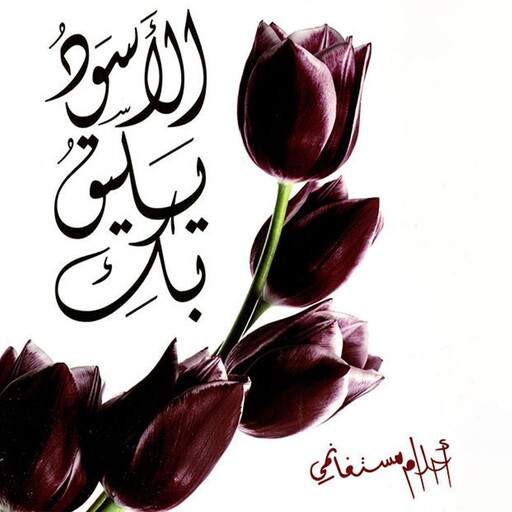 الأسودُ
يليقُ
بكِ
أحلام مستغانمي